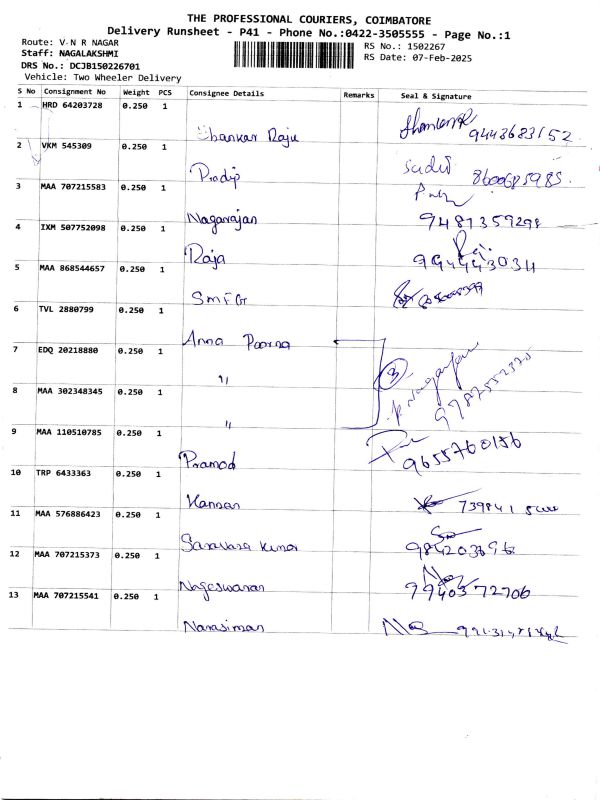 THE PROFESSIONAL COURIERS, COIMBATORE
Delivery Runsheet - P41 - Phone No.:0422-3505555 - Page No.:1
Route: V N R NAGAR
Staff: NAGALAKSHMI
DRS No.: DCJB150226701
Vehicle: Two Wheeler Delivery
RS No.: 1502267
RS Date: 07-Feb-2025
S No Consignment No Weight PCS Consignee Details Remarks Seal & Signature
1 HRD 64203728 0.250 1
Shankar Raju 9443683152
2 VKM 545309 0.250 1
Pradip
3 MAA 707215583 0.250 1
Nagarajan 9487359298
4 IXM 507752098 0.250 1
Raja 9944430311
5 MAA 868544657 0.250 1
SMFG
6 TVL 2880799 0.250 1
Anna Poorna
7 EDQ 20218880 0.250 1
"
3
8 MAA 302348345 0.250 1
"
9 MAA 110510785 0.250 1
Pramod 9655760156
10 TRP 6433363 0.250 1
Kannan
11 MAA 576886423 0.250 1
Saravana Kumar
12 MAA 707215373 0.250 1
Nageswaran 7940372706
13 MAA 707215541 0.250 1
Narasiman